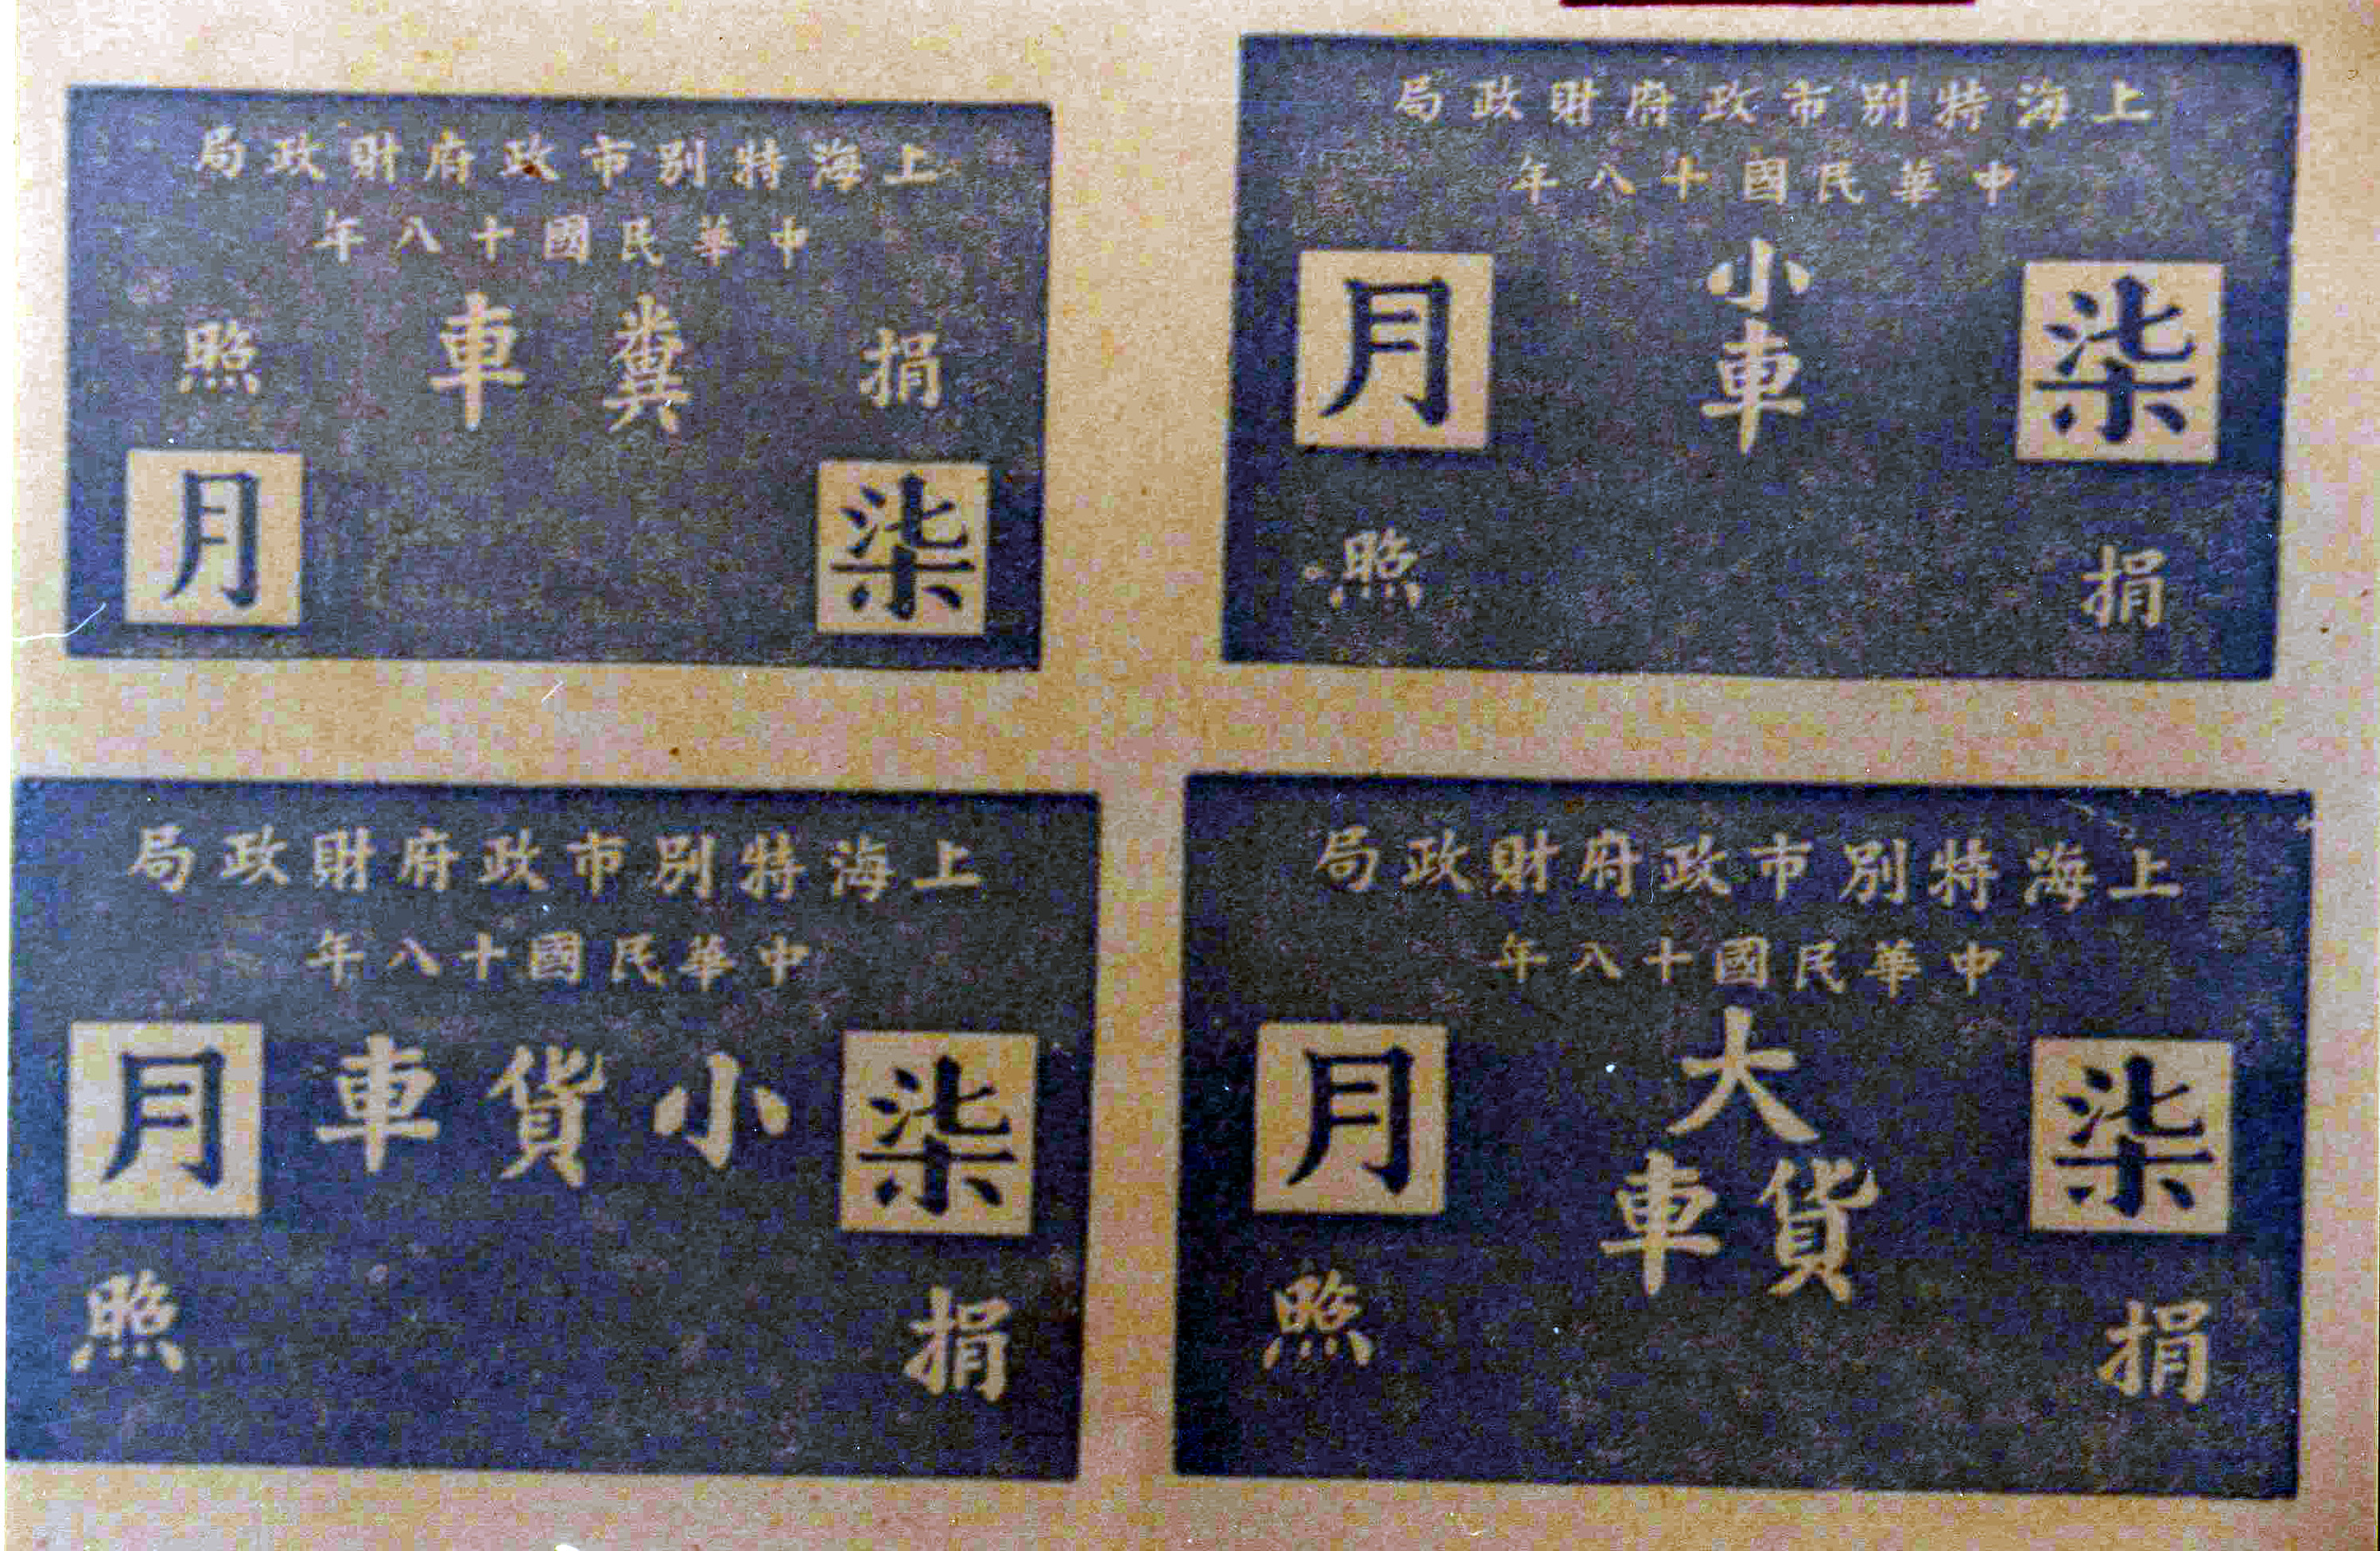 上海特別市政府財政局
中華民國十八年
捐 糞車 照
柒 月
上海特別市政府財政局
中華民國十八年
小車
柒 月
捐 照
上海特別市政府財政局
中華民國十八年
柒 小貨車 月
捐 照
上海特別市政府財政局
中華民國十八年
柒 大 月
貨車
捐 照